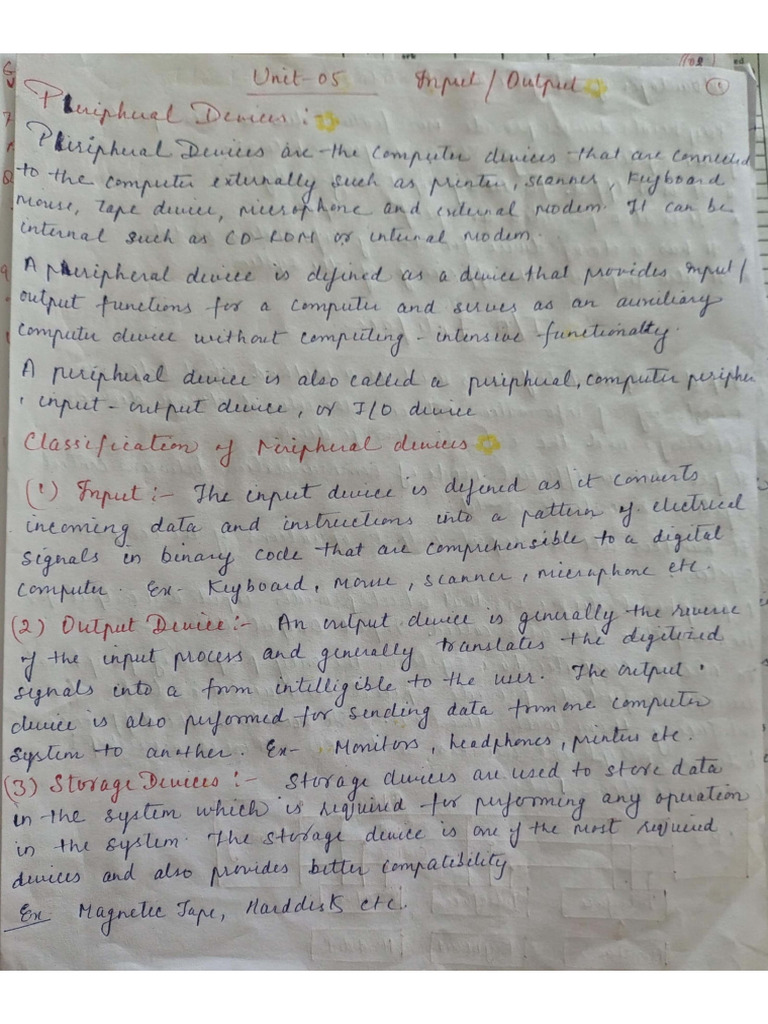 Unit-05 Input / Output
Peripheral Devices :
Peripheral Devices are the computer devices that are connected
to the computer externally such as printer, scanner, Keyboard
mouse, tape device, microphone and external modem. It can be
internal such as CD-ROM or internal modem.
A peripheral device is defined as a device that provides input /
output functions for a computer and serves as an auxiliary
computer device without computing - intensive functionality.
A peripheral device is also called a peripheral, computer peripher
, input - output device, or I/O device
Classification of Peripheral devices
(1) Input :- The input device is defined as it converts
incoming data and instructions into a pattern of electrical
signals in binary code that are comprehensible to a digital
computer. Ex- Keyboard, mouse, scanner, microphone etc.
(2) Output Device :- An output device is generally the reverse
of the input process and generally translates the digitized
signals into a from intelligible to the user. The output
device is also performed for sending data from one computer
system to another. Ex- Monitors, headphones, printers etc.
(3) Storage Devices :- Storage devices are used to store data
in the system which is required for performing any operation
in the system. The storage device is one of the most required
devices and also provides better compatibility.
Ex Magnetic Tape, Harddisk etc.